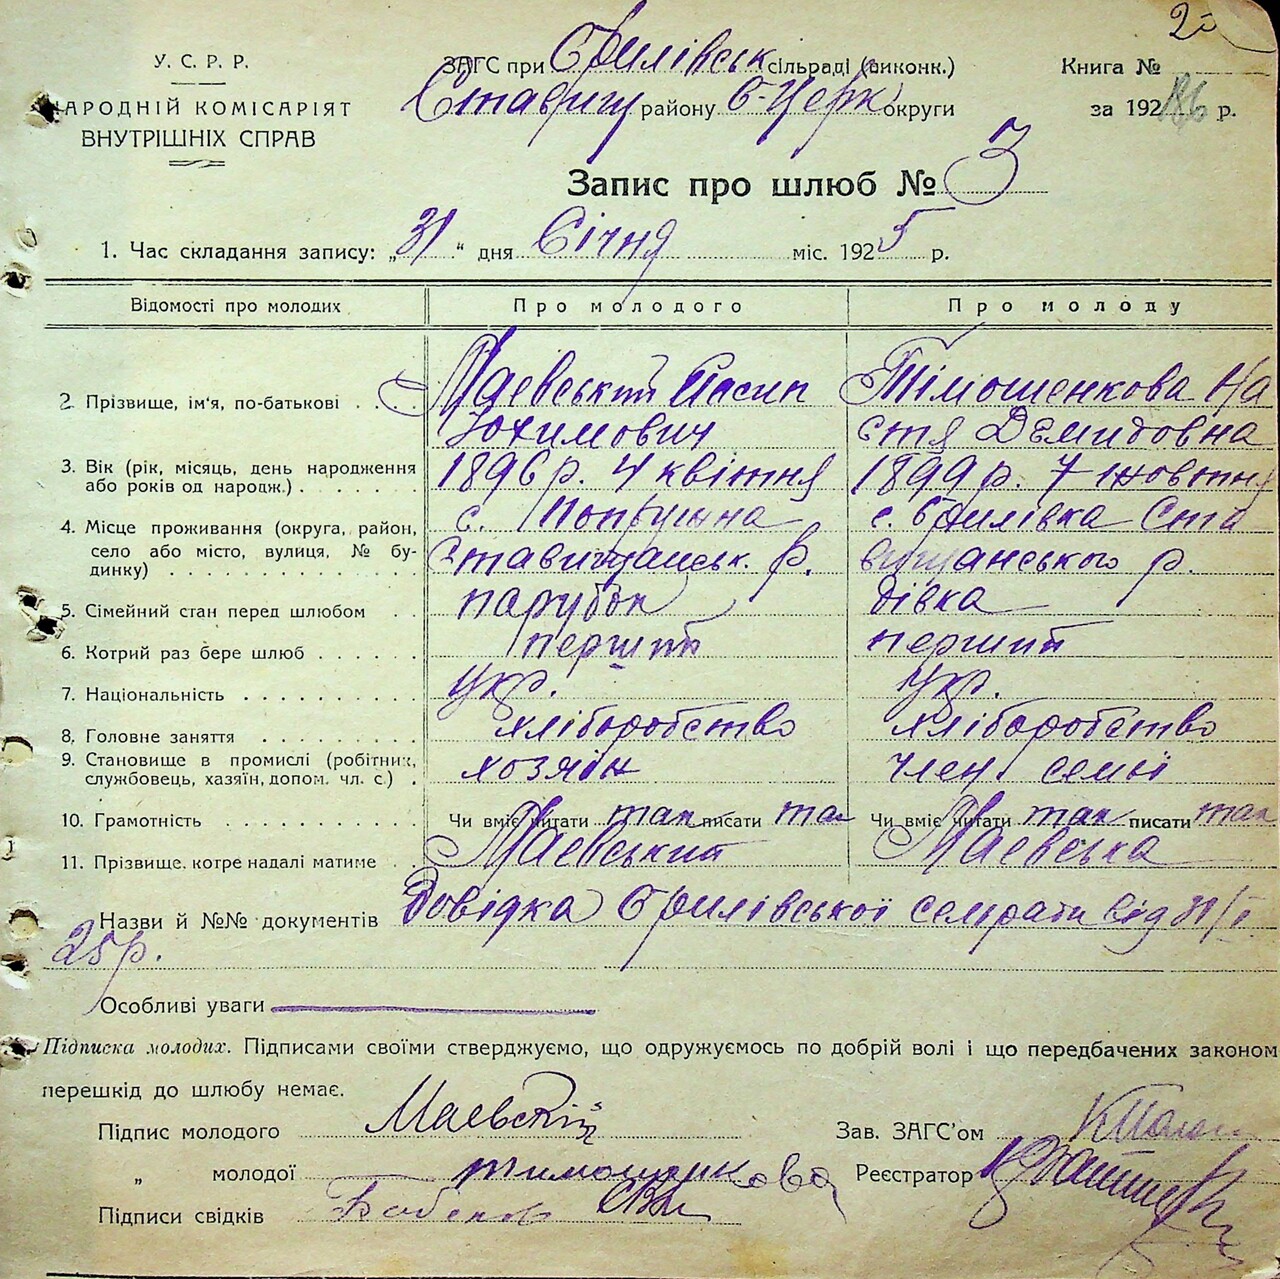 У. С. Р. Р.
НАРОДНІЙ КОМІСАРІЯТ
ВНУТРІШНІХ СПРАВ
ЗАГС при Брилівськ сільраді (виконк.)
Ставищ району Б-Церк округи
Книга №
за 192 р.
Запис про шлюб № 3
1. Час складання запису: „31“ дня Січня міс. 1925 р.
Відомості про молодих Про молодого Про молоду
2. Прізвище, ім'я, по-батькові Маєвський Йосип Тімошенкова На
Юхимович стя Демидовна
3. Вік (рік, місяць, день народження 1896 р. 4 квітня 1899 р. 7 жовтня
або років од народж.)
4. Місце проживання (округа, район, с. Попружна с. Брилівка Ста
село або місто, вулиця, № бу- Ставищанськ. р. вищанського р.
динку)
5. Сімейний стан перед шлюбом парубок дівка
6. Котрий раз бере шлюб перший перший
7. Національність Укр. Укр.
8. Головне заняття хліборобство хліборобство
9. Становище в промислі (робітник, хозяїн член семьї
службовець, хазяїн, допом. чл. с.)
10. Грамотність Чи вміє читати так писати так Чи вміє читати так писати так
11. Прізвище, котре надалі матиме Маєвський Маєвська
Назви й №№ документів Довідка Брилівської від 31/I
25 р.
Особливі уваги
Підписка молодих. Підписами своїми стверджуємо, що одружуємось по добрій волі і що передбачених законом
перешкід до шлюбу немає.
Підпис молодого Маевский
Зав. ЗАГС'ом
„ молодої тимошенкова
Реєстратор
Підписи свідків